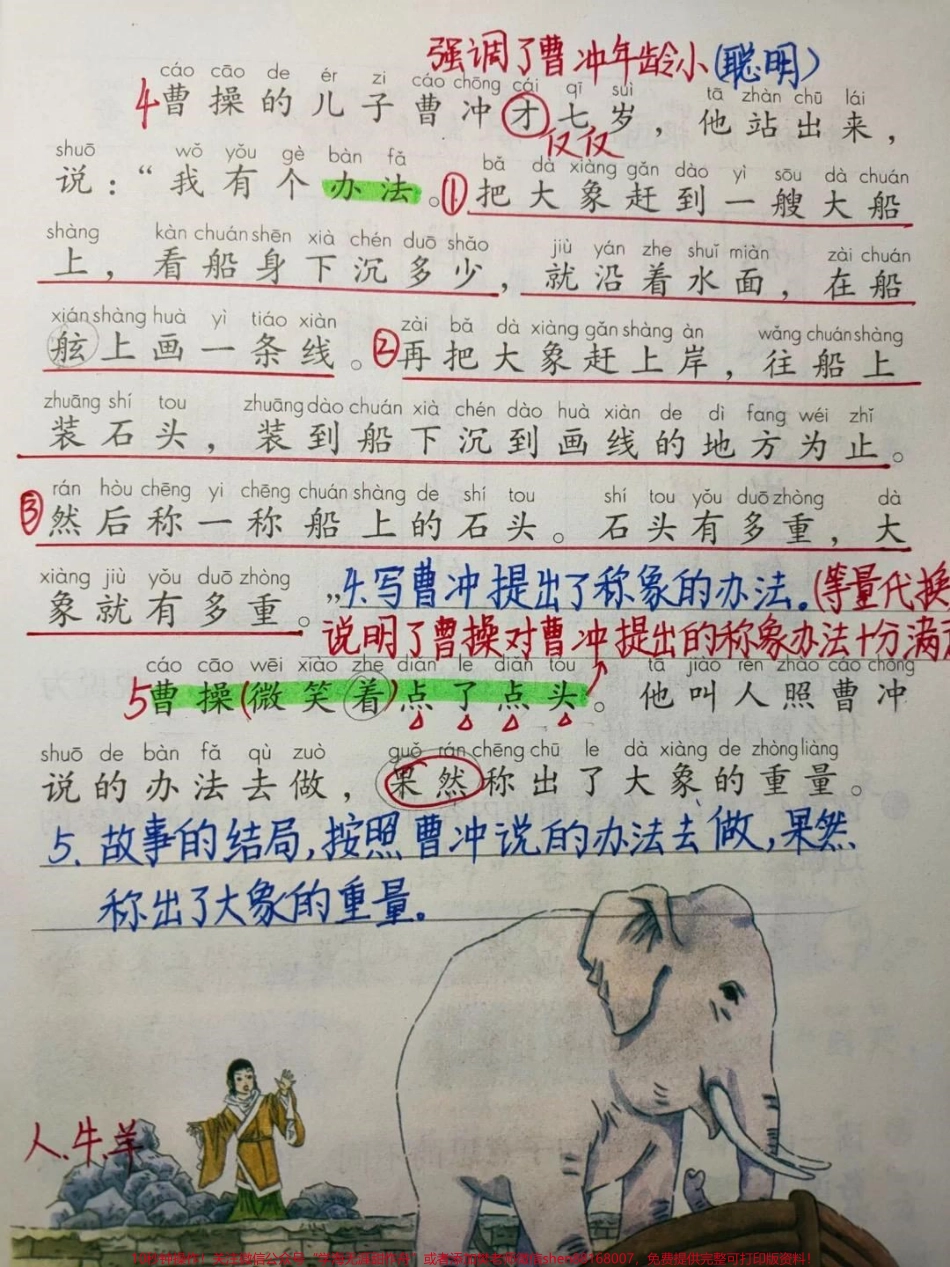 强调了曹冲年龄小(聪明)
cáo cāo de ér zi cáo chōng cái qī suì tā zhàn chū lái
4曹操的儿子曹冲才七岁，他站出来，
仅仅
shuō wǒ yǒu gè bàn fǎ bǎ dà xiàng gǎn dào yì sōu dà chuán
说：“我有个办法。①把大象赶到一艘大船
shàng kàn chuán shēn xià chén duō shǎo jiù yán zhe shuǐ miàn zài chuán
上，看船身下沉多少，就沿着水面，在船
xián shàng huà yì tiáo xiàn zài bǎ dà xiàng gǎn shàng àn wǎng chuán shàng
舷上画一条线。②再把大象赶上岸，往船上
zhuāng shí tou zhuāng dào chuán xià chén dào huà xiàn de dì fang wéi zhǐ
装石头，装到船下沉到画线的地方为止。
rán hòu chēng yi chēng chuán shàng de shí tou shí tou yǒu duō zhòng dà
③然后称一称船上的石头。石头有多重，大
xiàng jiù yǒu duō zhòng
象就有多重。”4.写曹冲提出了称象的办法。(等量代换
说明了曹操对曹冲提出的称象办法十分满
cáo cāo wēi xiào zhe diǎn le diǎn tóu tā jiào rén zhào cáo chōng
5曹操(微笑着)点了点头。他叫人照曹冲
shuō de bàn fǎ qù zuò guǒ rán chēng chū le dà xiàng de zhòng liàng
说的办法去做，果然称出了大象的重量。
5.故事的结局,按照曹冲说的办法去做,果然
称出了大象的重量。
人.牛.羊